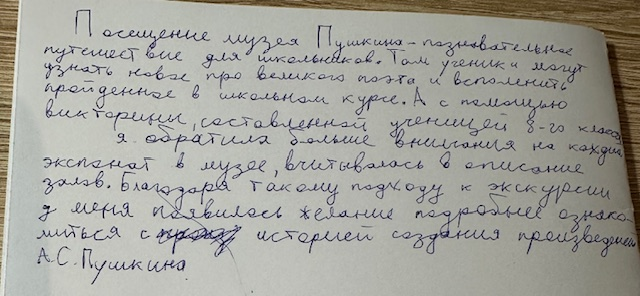 Посещение музея Пушкина - познавательное
путешествие для школьников. Там ученики могут
узнать новое про великого поэта и вспомнить
пройденное в школьном курсе. А с помощью
викторины, составленной ученицей 8-го класса,
я обратила больше внимания на каждый
экспонат в музее, вчитывалась в описание
залов. Благодаря такому подходу к экскурсии
у меня появилось желание подробнее ознако-
миться с историей создания произведений
А.С. Пушкина.